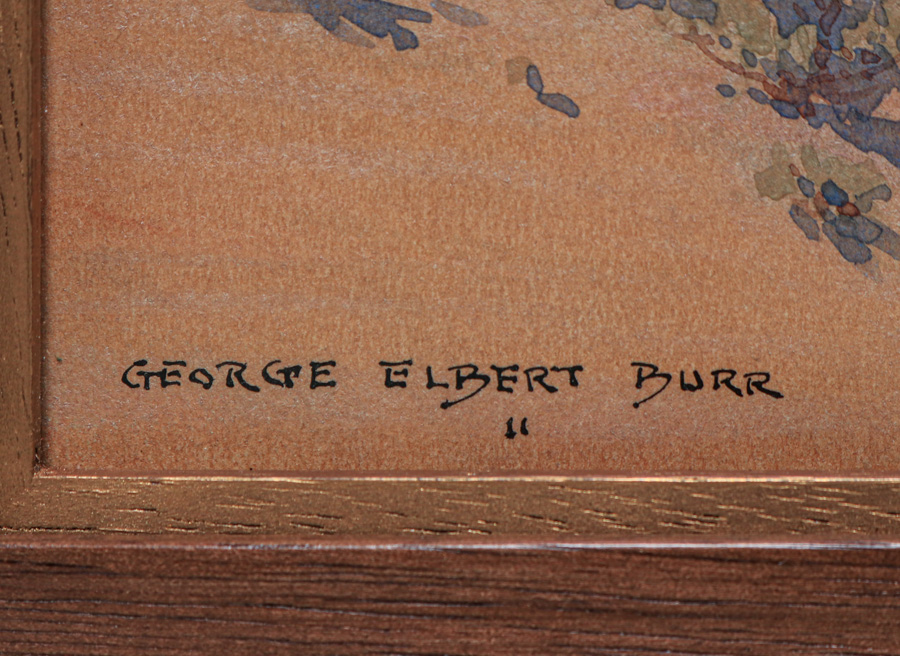 GEORGE ELBERT BURR
"